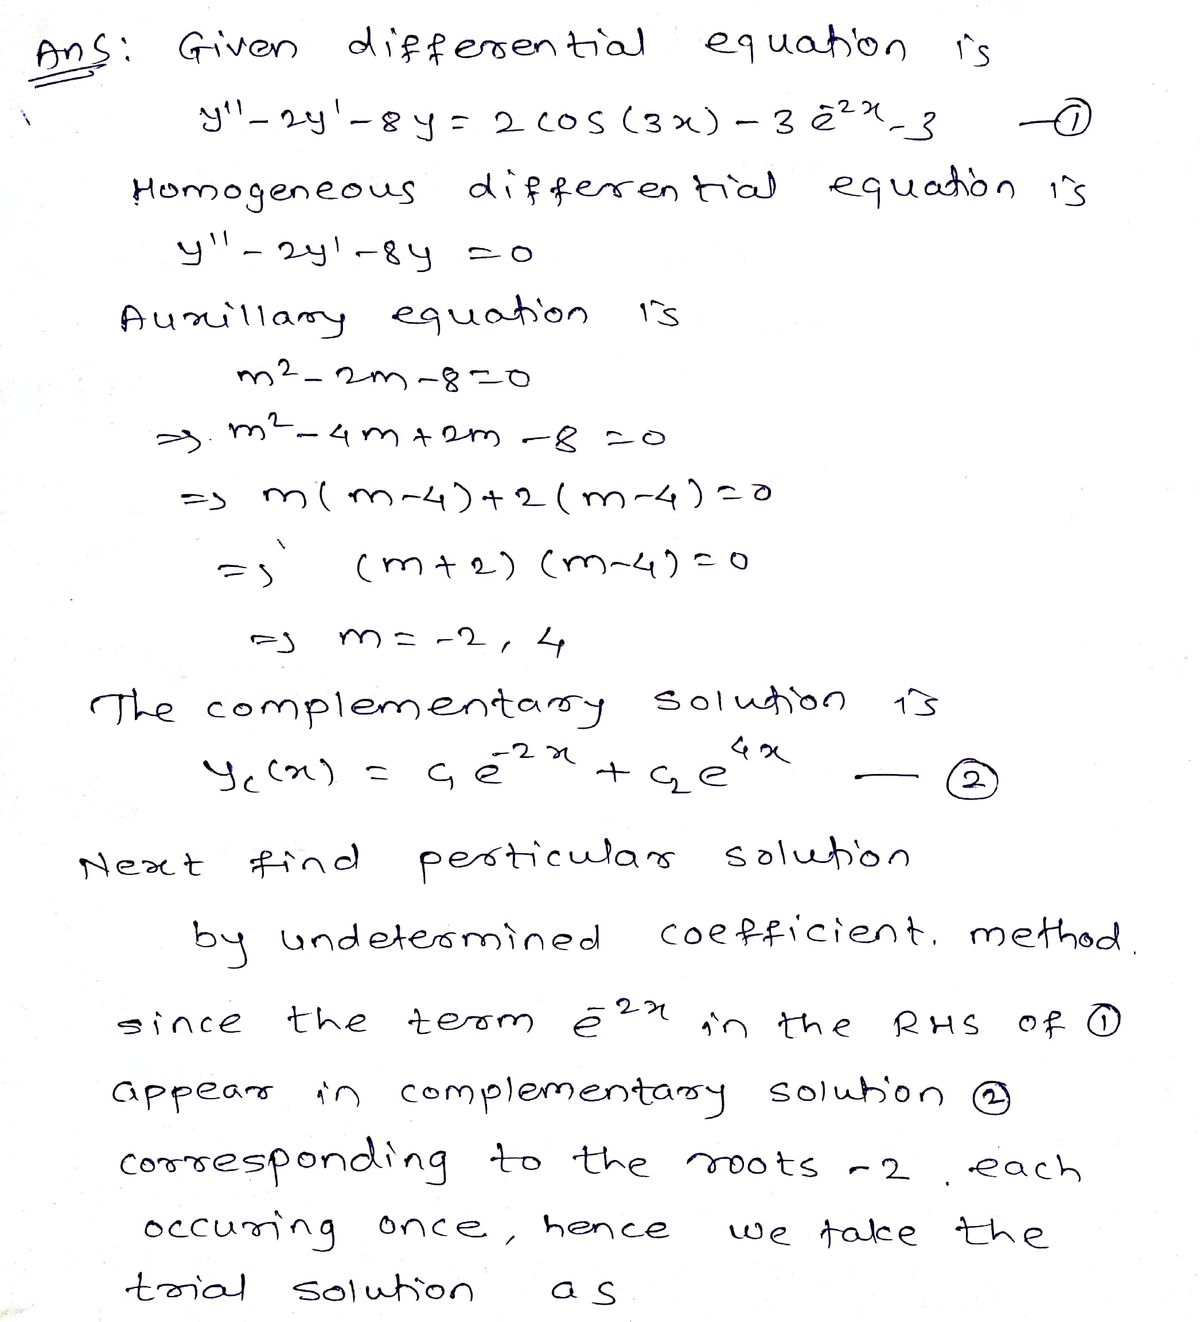 Ans: Given differential equation is
y'' - 2y' - 8y = 2 cos (3x) - 3 e^-2x - 3 — ①
Homogeneous differential equation is
y'' - 2y' - 8y = 0
Auxillary equation is
m² - 2m - 8 = 0
=> m² - 4m + 2m - 8 = 0
=> m(m-4) + 2(m-4) = 0
=> (m+2) (m-4) = 0
=> m = -2, 4
The complementary solution is
y_c(x) = c₁ e^-2x + c₂ e^4x — ②
Next find perticular solution
by undetermined coefficient. method.
since the term e^-2x in the RHS of ①
appear in complementary solution ②
corresponding to the roots -2, each
occuring once, hence we take the
trial solution as